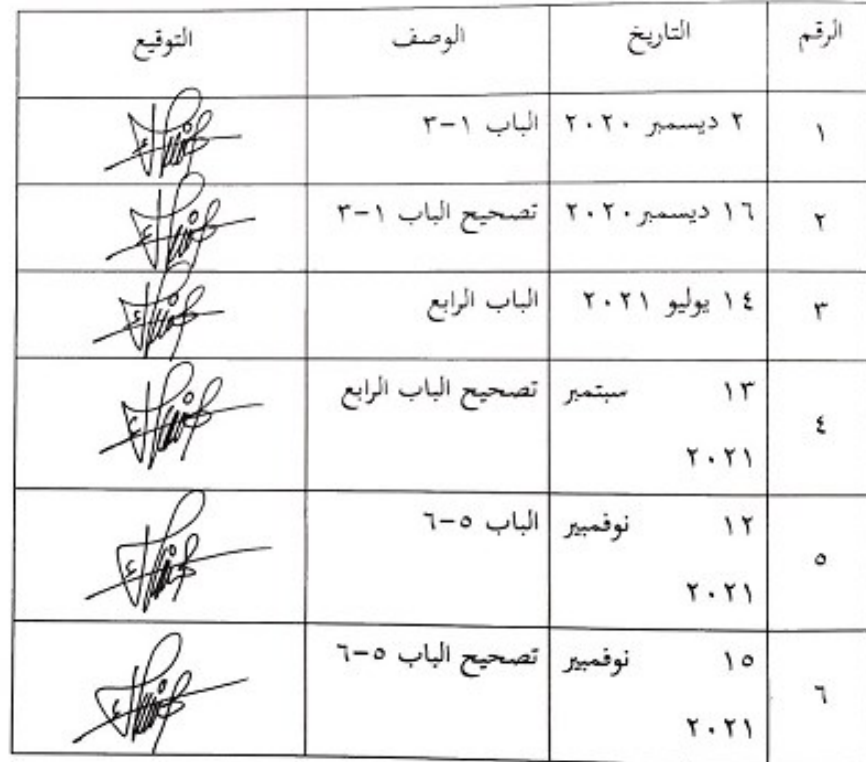 الرقم التاريخ الوصف التوقيع
١ ٢ ديسمبر ٢٠٢٠ الباب ١-٣
٢ ١٦ ديسمبر ٢٠٢٠ تصحيح الباب ١-٣
٣ ١٤ يوليو ٢٠٢١ الباب الرابع
١٣ سبتمبر تصحيح الباب الرابع
٤
٢٠٢١
١٢ نوفمبير الباب ٥-٦
٥
٢٠٢١
١٥ نوفمبير تصحيح الباب ٥-٦
٦
٢٠٢١